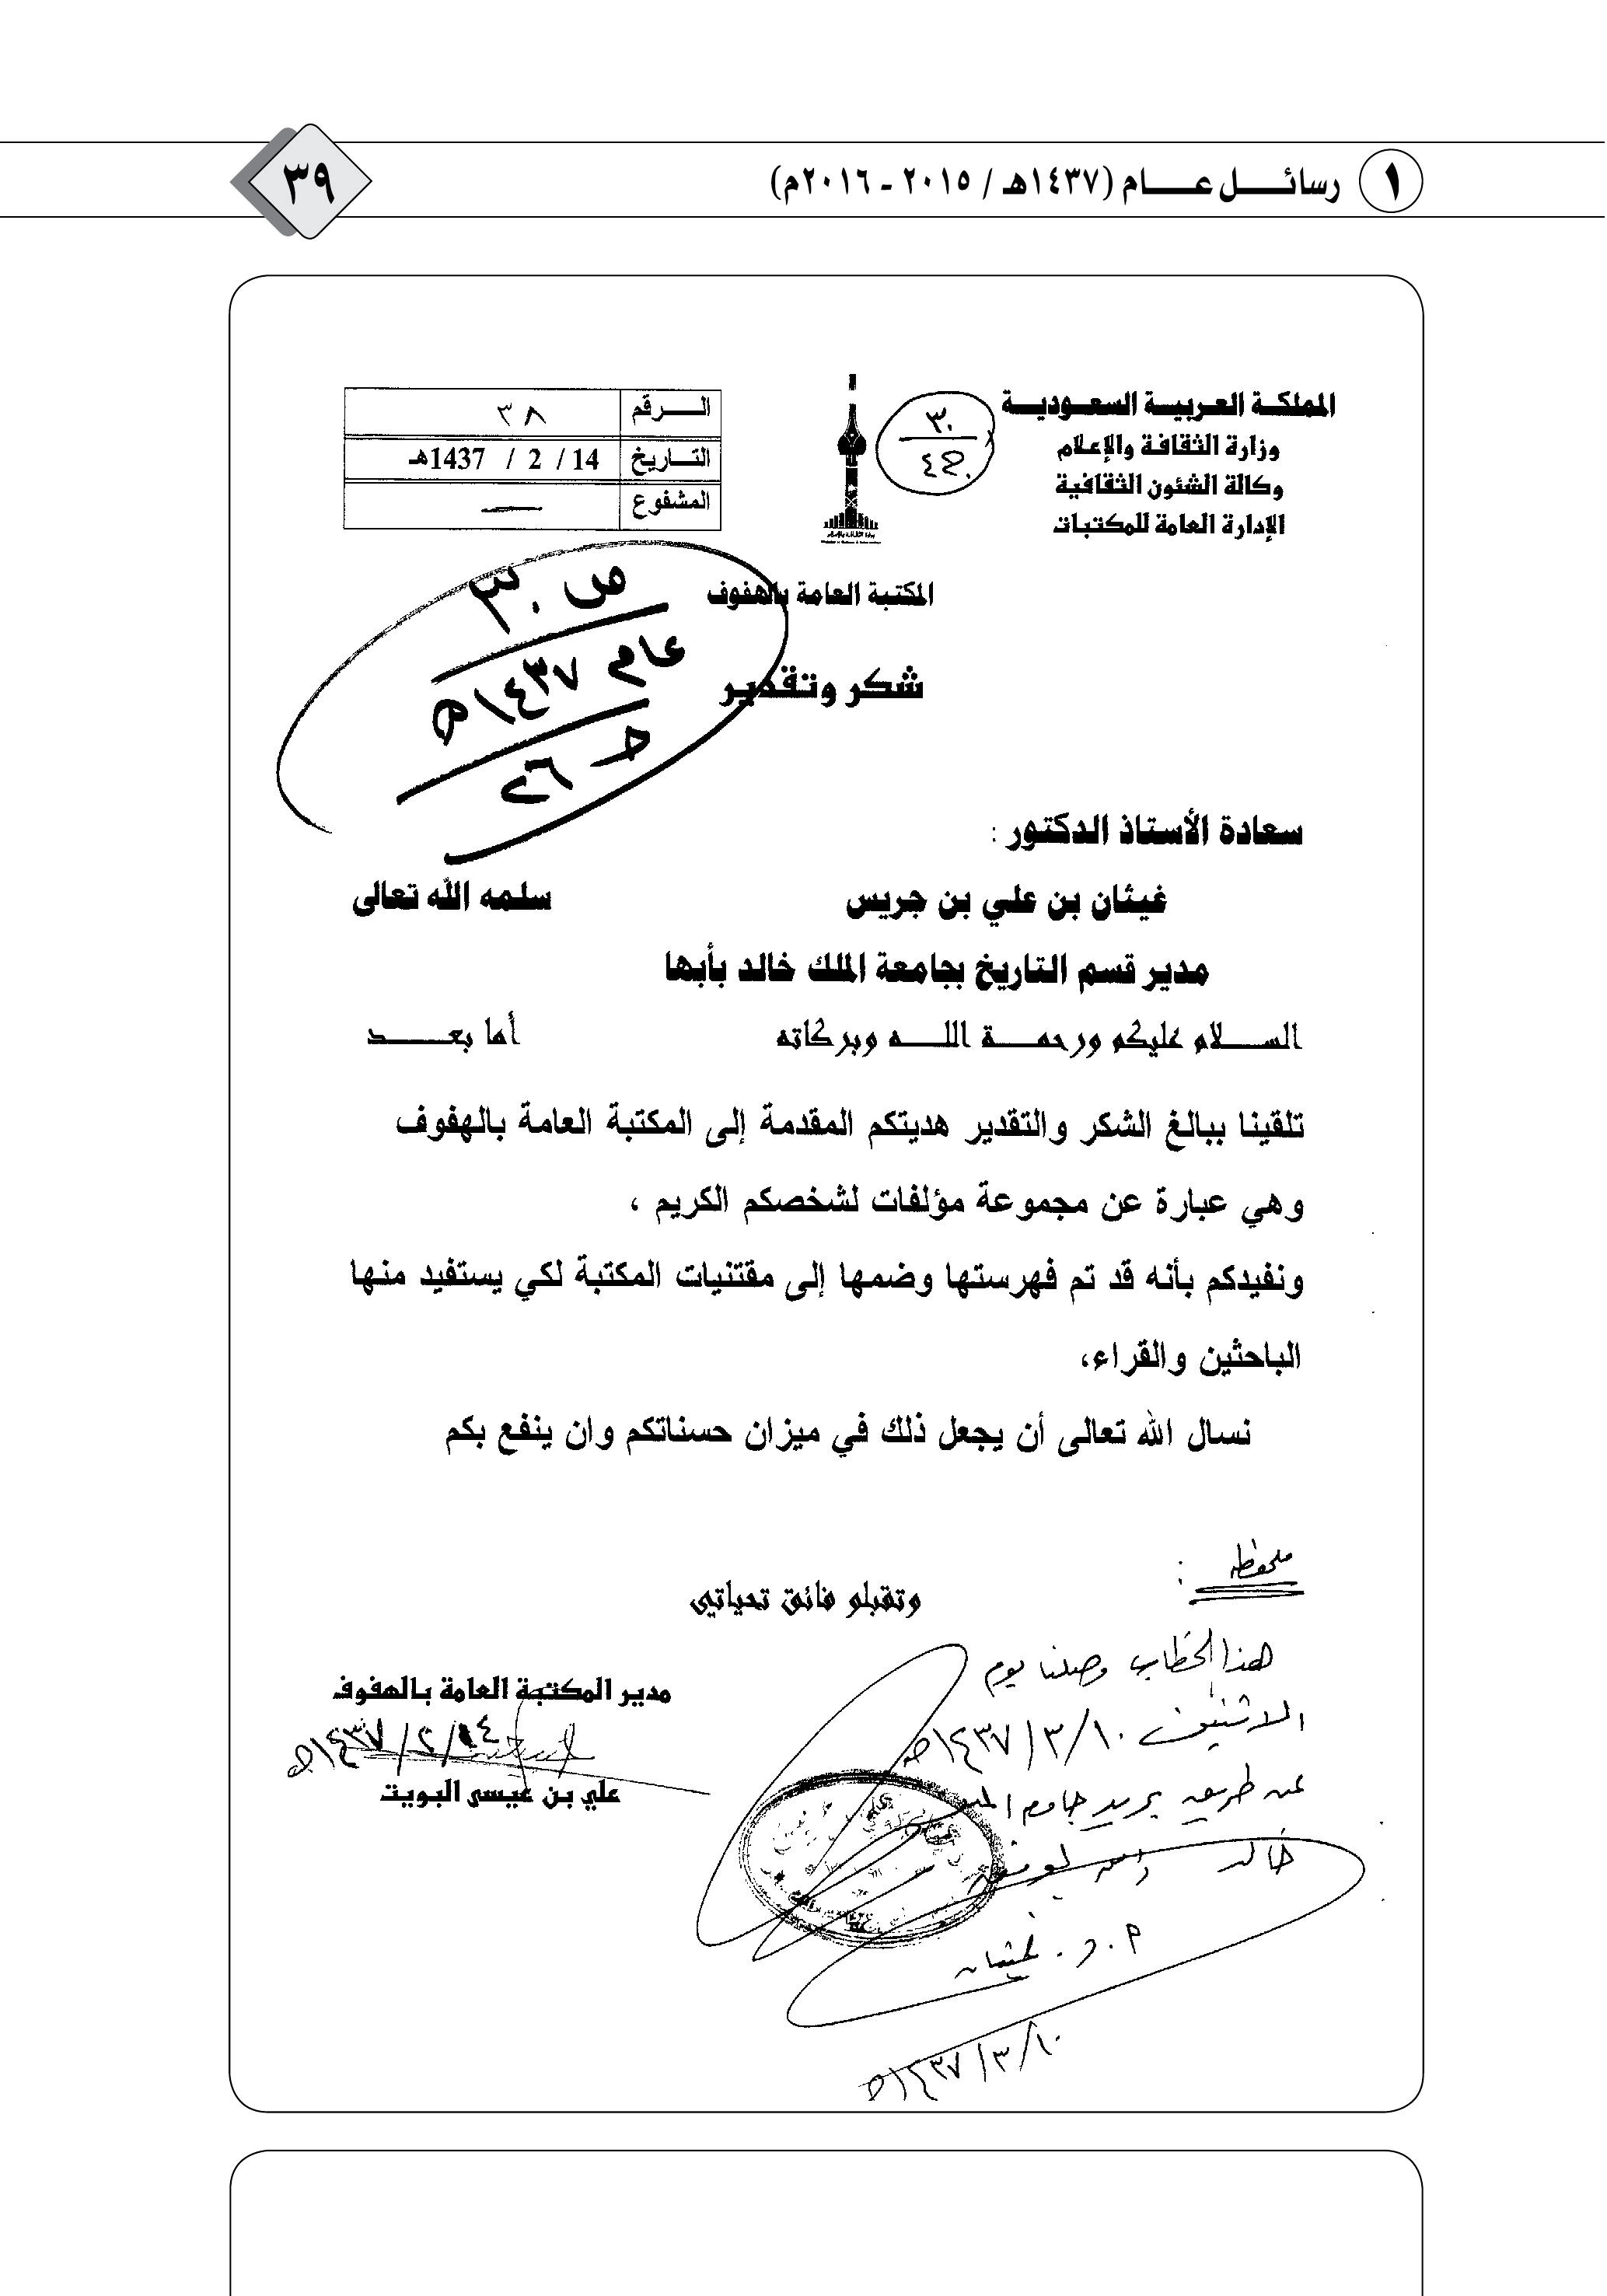 ١ رسائل عام (١٤٣٧هـ / ٢٠١٥ - ٢٠١٦م)
٣٩
المملكة العربية السعودية
وزارة الثقافة والإعلام
وكالة الشئون الثقافية
الإدارة العامة للمكتبات
٣٠
الرقم ٣٨
التاريخ 14 / 2 / 1437هـ
المشفوع
المكتبة العامة بالهفوف
شكر وتقدير
ص ٣٠
عام ١٤٣٧هـ
سعادة الأستاذ الدكتور :
غيثان بن علي بن جريس سلمه الله تعالى
مدير قسم التاريخ بجامعة الملك خالد بأبها
السلام عليكم ورحمة الله وبركاته أما بعد
تلقينا ببالغ الشكر والتقدير هديتكم المقدمة إلى المكتبة العامة بالهفوف
وهي عبارة عن مجموعة مؤلفات لشخصكم الكريم ،
ونفيدكم بأنه قد تم فهرستها وضمها إلى مقتنيات المكتبة لكي يستفيد منها
الباحثين والقراء،
نسال الله تعالى أن يجعل ذلك في ميزان حسناتكم وان ينفع بكم
وتقبلو فائق تحياتي
مدير المكتبة العامة بالهفوف
١٤/٢/١٤٣٧هـ
علي بن عيسى البويت
ملحوظه :
هذا الخطاب وصلنا يوم
الاثنين ١٠/٣/١٤٣٧هـ
عن طريق بريد جامعة الملك
خالد
أ. د. غيثان
١٠/٣/١٤٣٧هـ